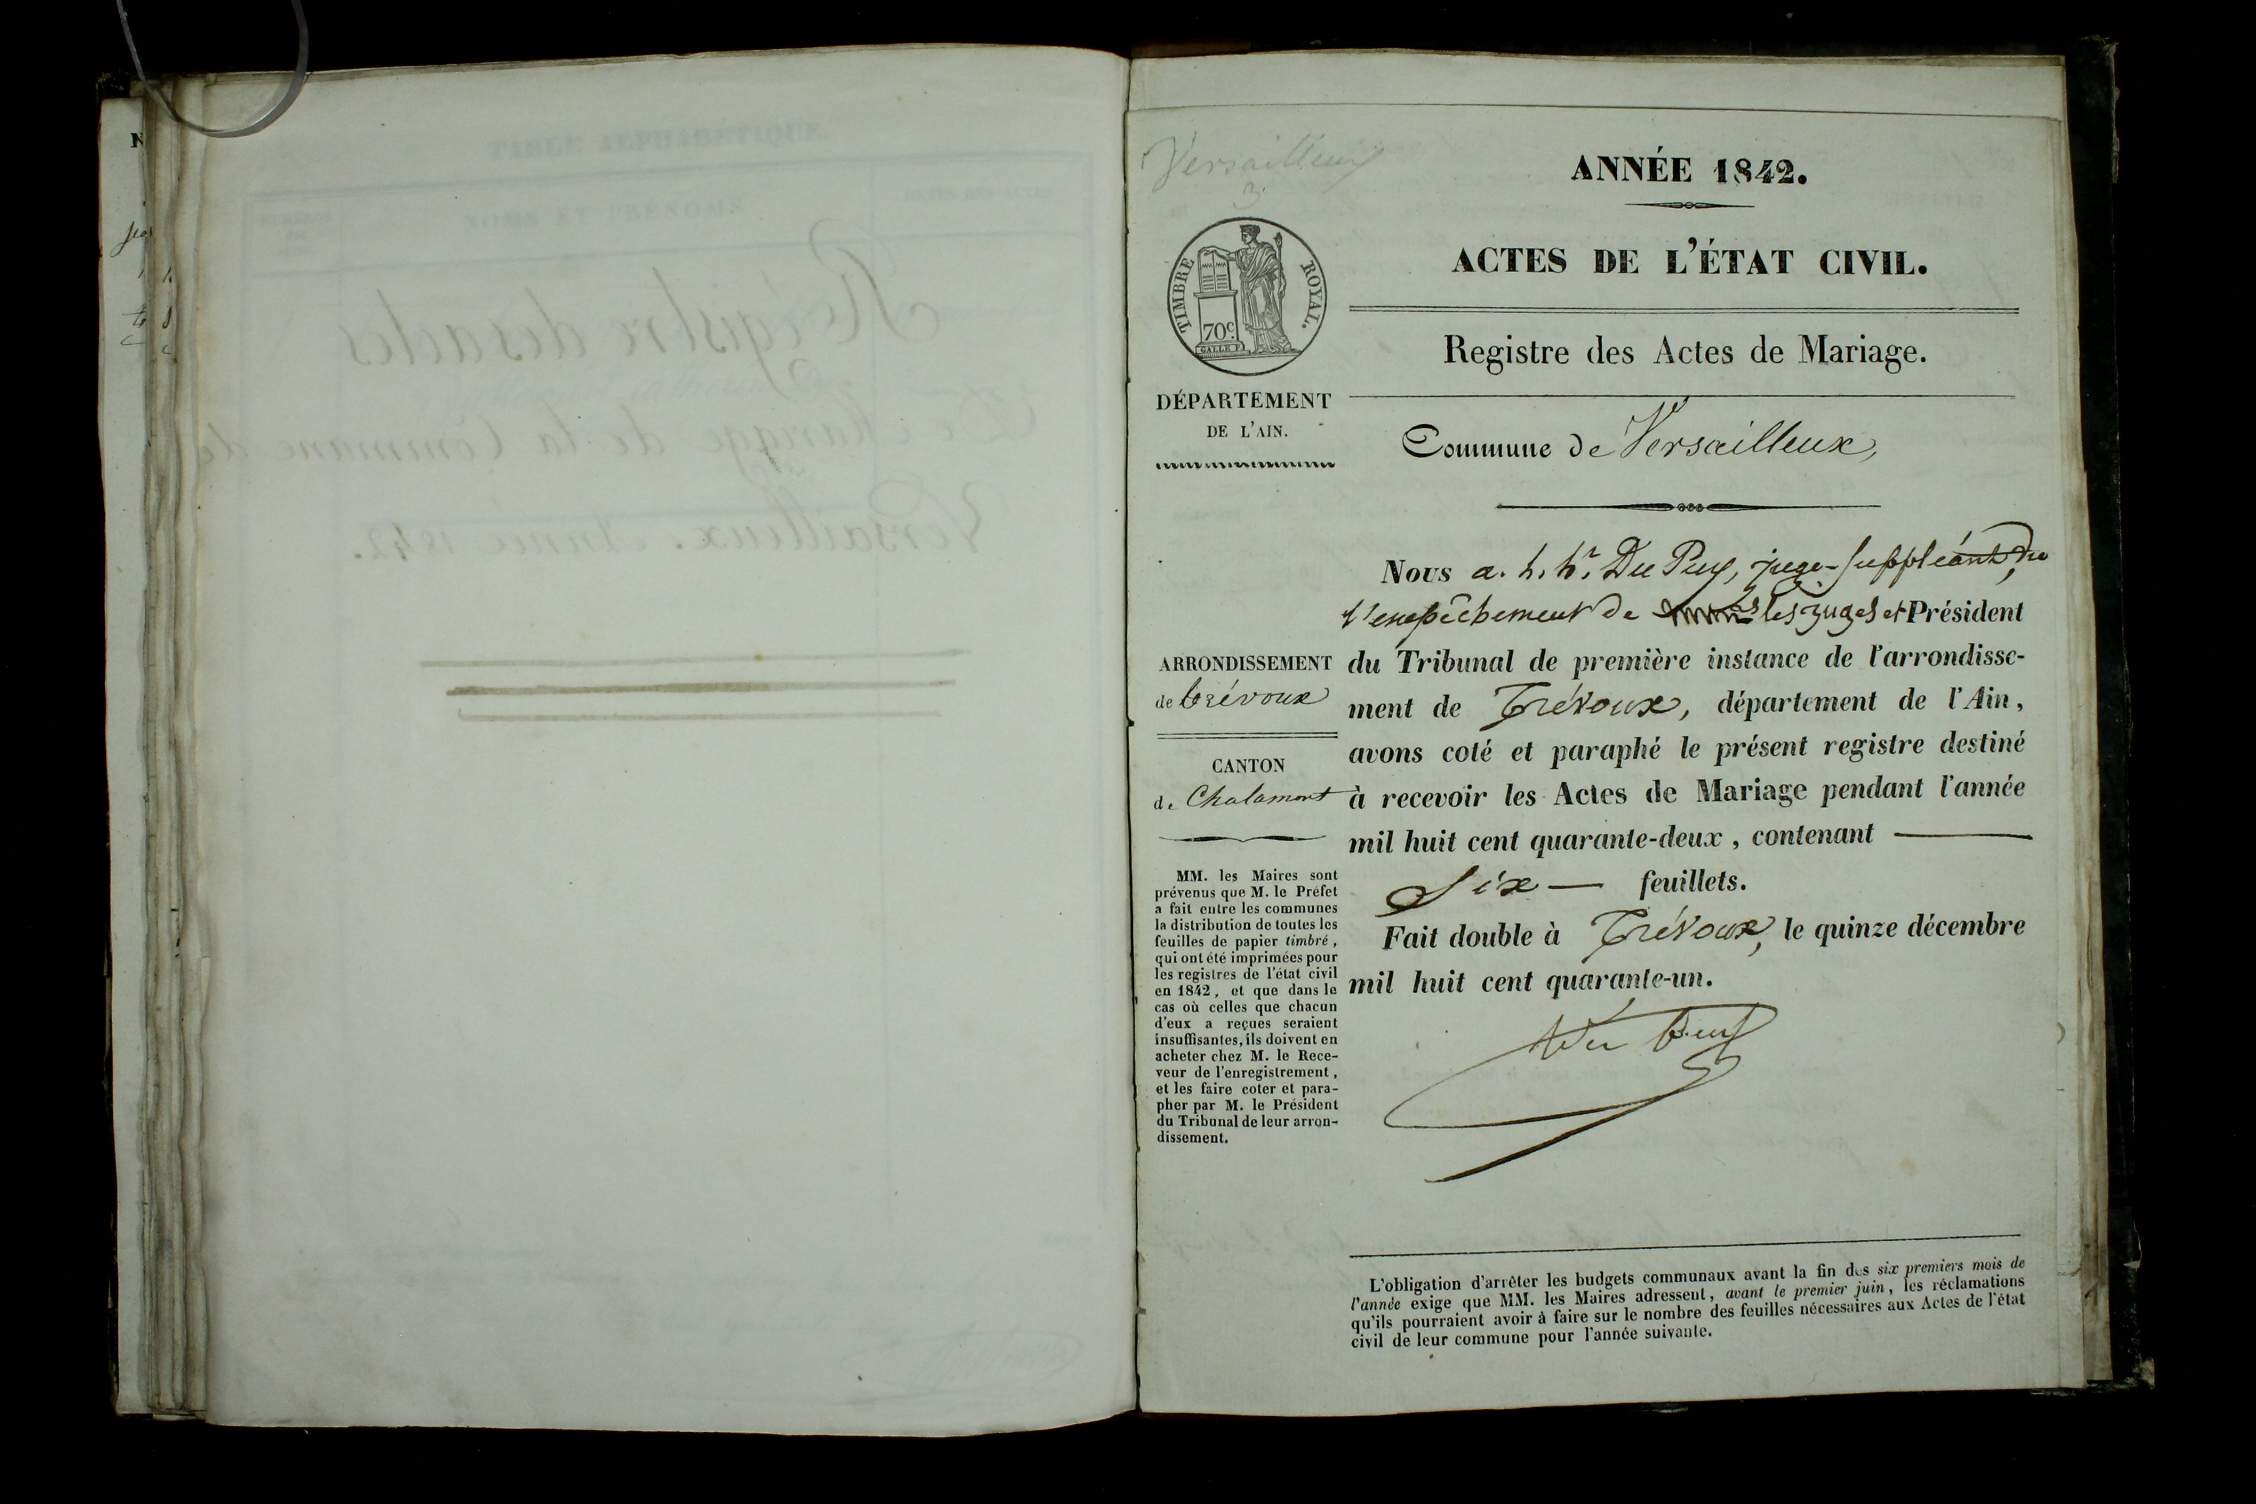 Versailleux
3
ANNÉE 1842.
ACTES DE L'ÉTAT CIVIL.
TIMBRE ROYAL.
70c.
GALLE F.
Registre des Actes de Mariage.
DÉPARTEMENT
DE L'AIN.
Commune de Versailleux,
Nous a. h. hr. Du Puy, juge-suppléant, vu
l'empêchement de les juges et Président
du Tribunal de première instance de l'arrondisse-
ment de Trévoux, département de l'Ain,
avons coté et paraphé le présent registre destiné
à recevoir les Actes de Mariage pendant l'année
mil huit cent quarante-deux, contenant
Six — feuillets.
Fait double à Trévoux, le quinze décembre
mil huit cent quarante-un.
Du Puy
ARRONDISSEMENT
de Trévoux
CANTON
de Chalamont
MM. les Maires sont
prévenus que M. le Préfet
a fait entre les communes
la distribution de toutes les
feuilles de papier timbré,
qui ont été imprimées pour
les registres de l'état civil
en 1842, et que dans le
cas où celles que chacun
d'eux a reçues seraient
insuffisantes, ils doivent en
acheter chez M. le Rece-
veur de l'enregistrement,
et les faire coter et para-
pher par M. le Président
du Tribunal de leur arron-
dissement.
L'obligation d'arrêter les budgets communaux avant la fin des six premiers mois de
l'année exige que MM. les Maires adressent, avant le premier juin, les réclamations
qu'ils pourraient avoir à faire sur le nombre des feuilles nécessaires aux Actes de l'état
civil de leur commune pour l'année suivante.